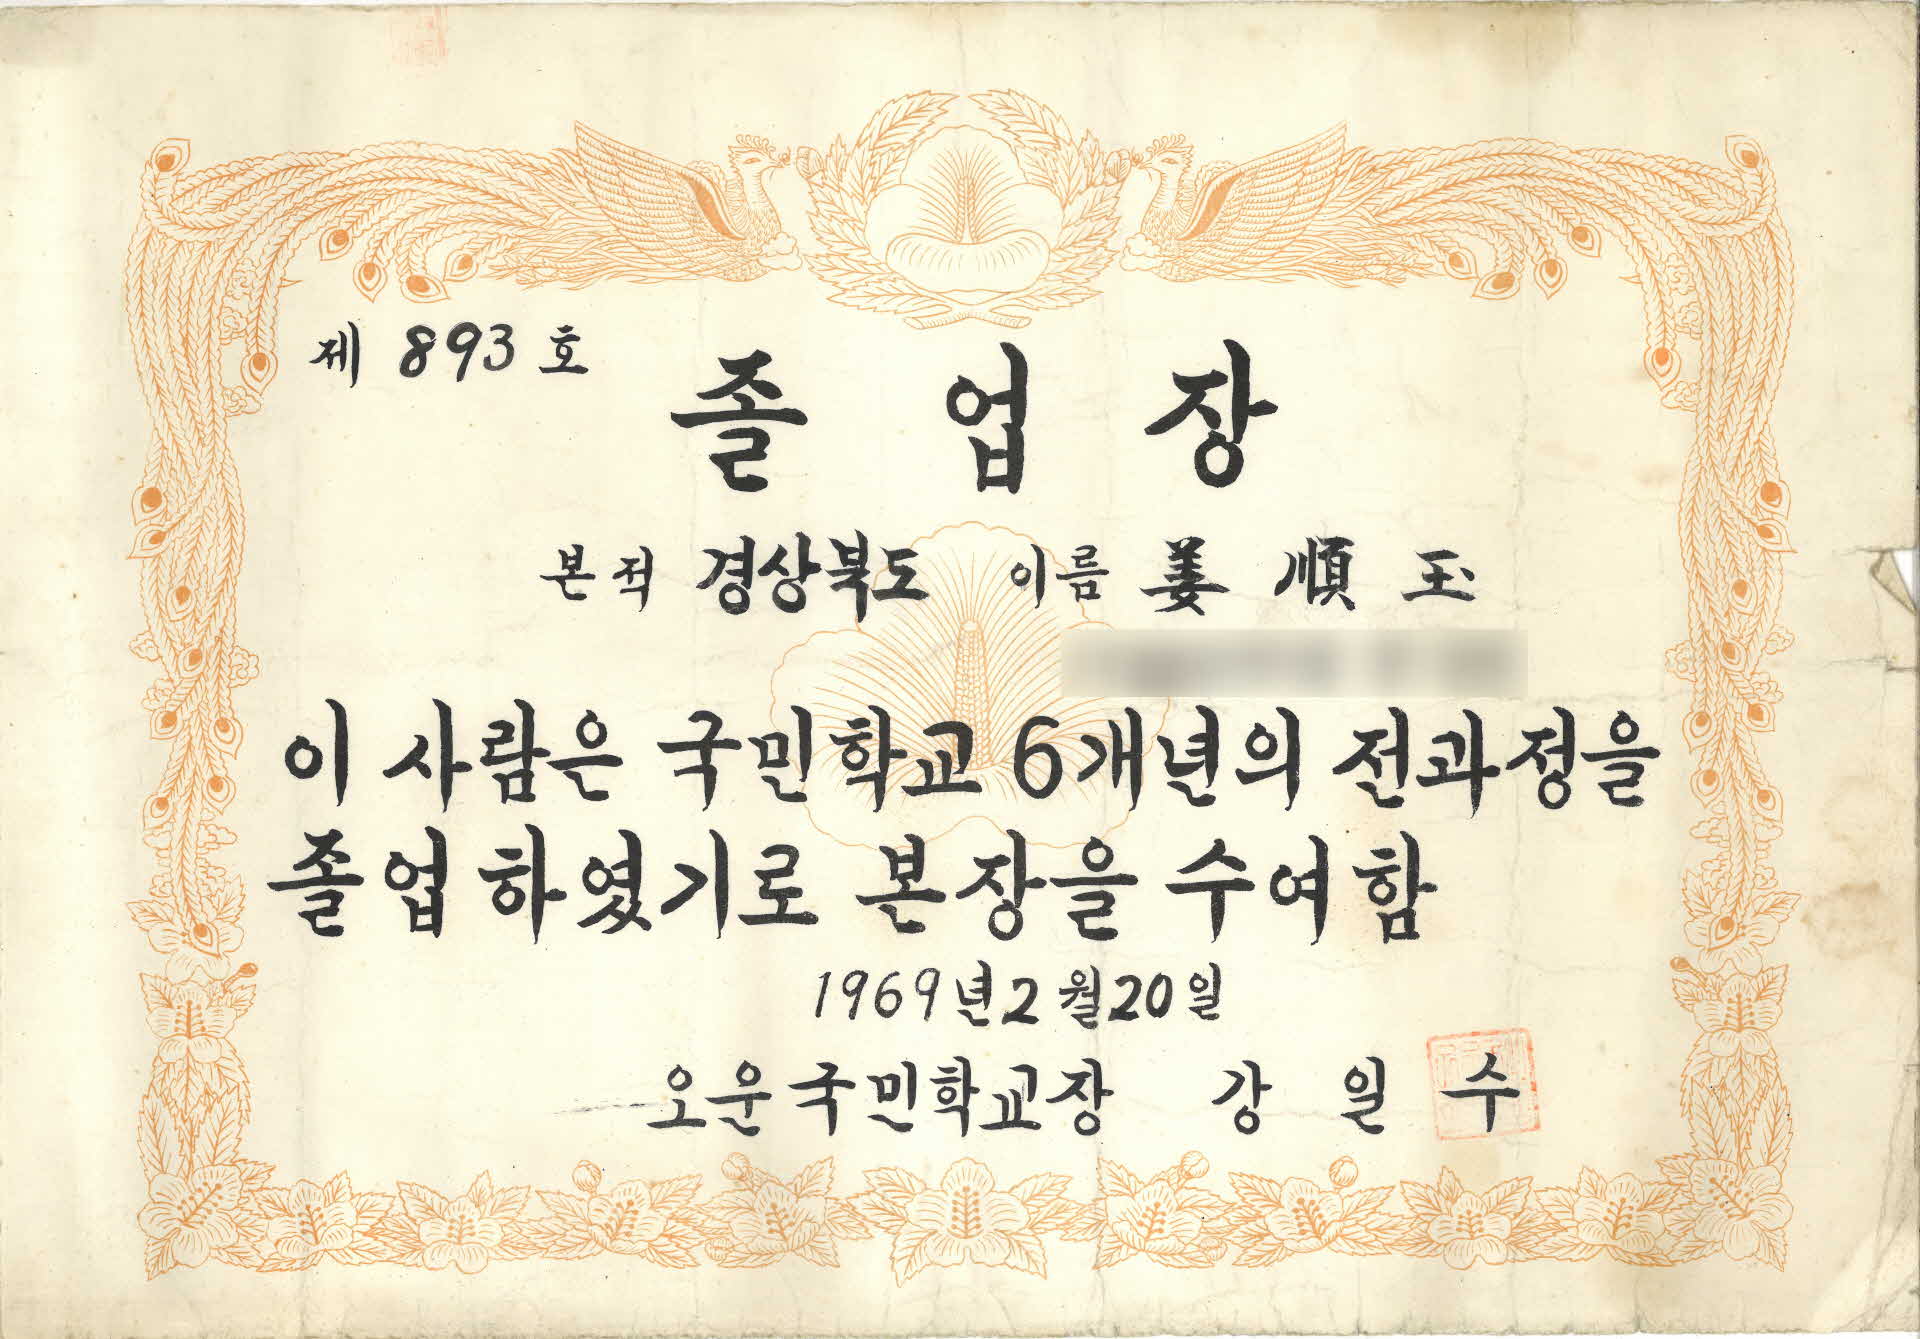 제 893 호
졸 업 장
본적 경상북도 이름 姜 順 玉
이 사람은 국민학교 6개년의 전과정을
졸업하였기로 본장을 수여함
1969년 2월 20일
오운국민학교장 강 일 수